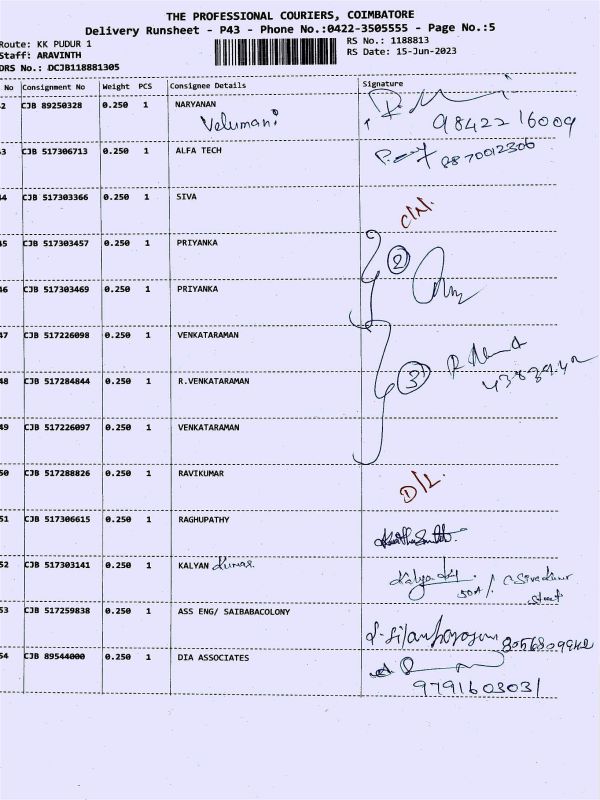 THE PROFESSIONAL COURIERS, COIMBATORE
Delivery Runsheet - P43 - Phone No.:0422-3505555 - Page No.:5
Route: KK PUDUR 1 RS No.: 1188813
Staff: ARAVINTH RS Date: 15-Jun-2023
DRS No.: DCJB118881305
No Consignment No Weight PCS Consignee Details Signature
2 CJB 89250328 0.250 1 NARYANAN
Velumani 98422 16009
3 CJB 517306713 0.250 1 ALFA TECH 9870012306
44 CJB 517303366 0.250 1 SIVA
45 CJB 517303457 0.250 1 PRIYANKA
2
46 CJB 517303469 0.250 1 PRIYANKA
47 CJB 517226098 0.250 1 VENKATARAMAN
48 CJB 517284844 0.250 1 R.VENKATARAMAN 3
49 CJB 517226097 0.250 1 VENKATARAMAN
50 CJB 517288826 0.250 1 RAVIKUMAR D/L
51 CJB 517306615 0.250 1 RAGHUPATHY
52 CJB 517303141 0.250 1 KALYAN Kumar
street
53 CJB 517259838 0.250 1 ASS ENG/ SAIBABACOLONY
54 CJB 89544000 0.250 1 DIA ASSOCIATES
9791603031